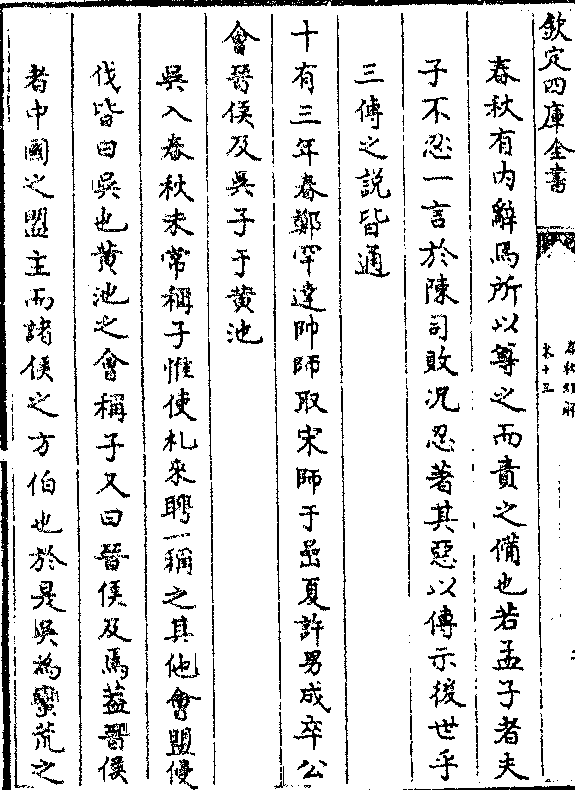 欽定四庫全書
春秋經解
卷十三
春秋有内辭焉所以尊之而責之備也若孟子者夫
子不忍一言於陳司敗况忍著其惡以傳示後世乎
三傳之説皆通
十有三年春鄭罕達帥師取宋師于嵒夏許男成卒公
會晉侯及吳子于黄池
吳入春秋未常稱子惟使札來聘一稱之其他會盟侵
伐皆曰吳也黄池之會稱子又曰晉侯及焉葢晉侯
者中國之盟主而諸侯之方伯也於是吳為蠻荒之